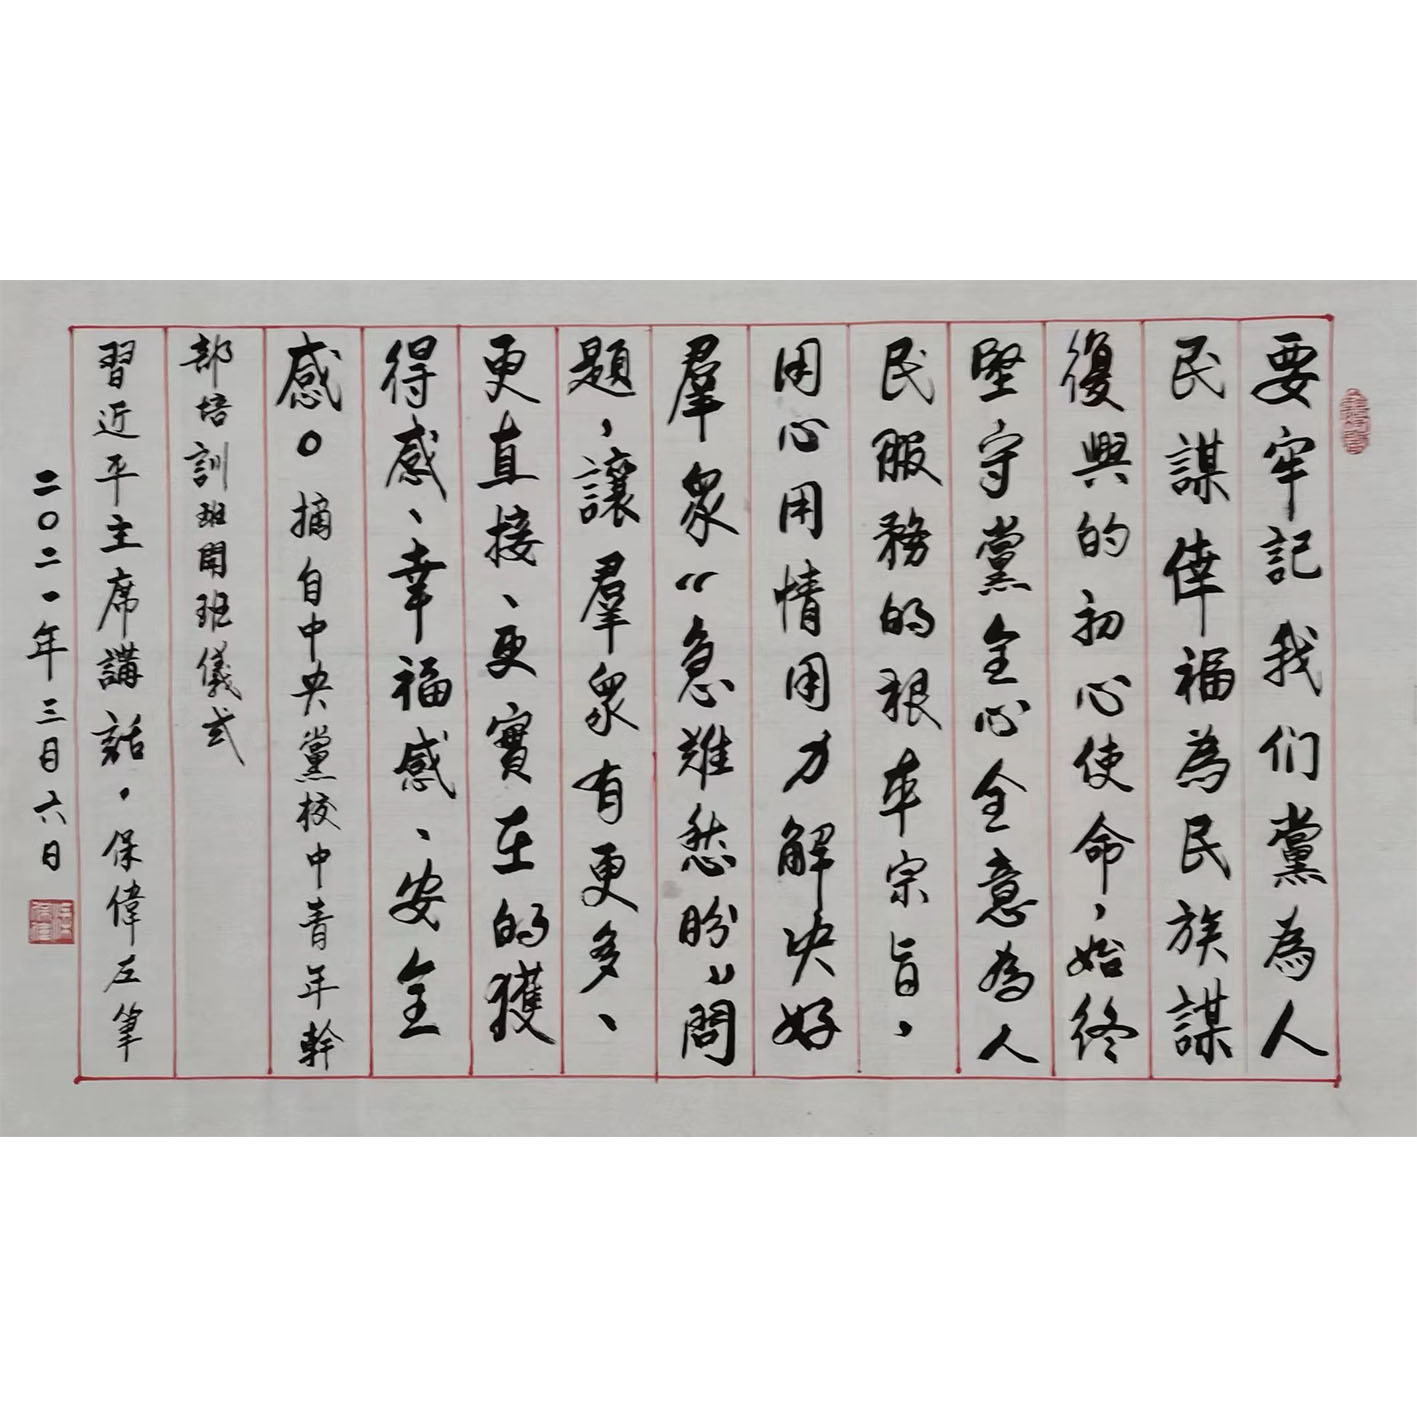 要牢记我们黨為人
民謀倖福為民族謀
復興的初心使命，始终
堅守黨全心全意為人
民服務的根本宗旨，
用心用情用力解决好
羣衆“急難愁盼”問
題，讓羣衆有更多、
更直接、更實在的獲
得感、幸福感、安全
感。摘自中央黨校中青年幹
部培訓班開班儀式
習近平主席講話，保偉左筆
二〇二一年三月六日